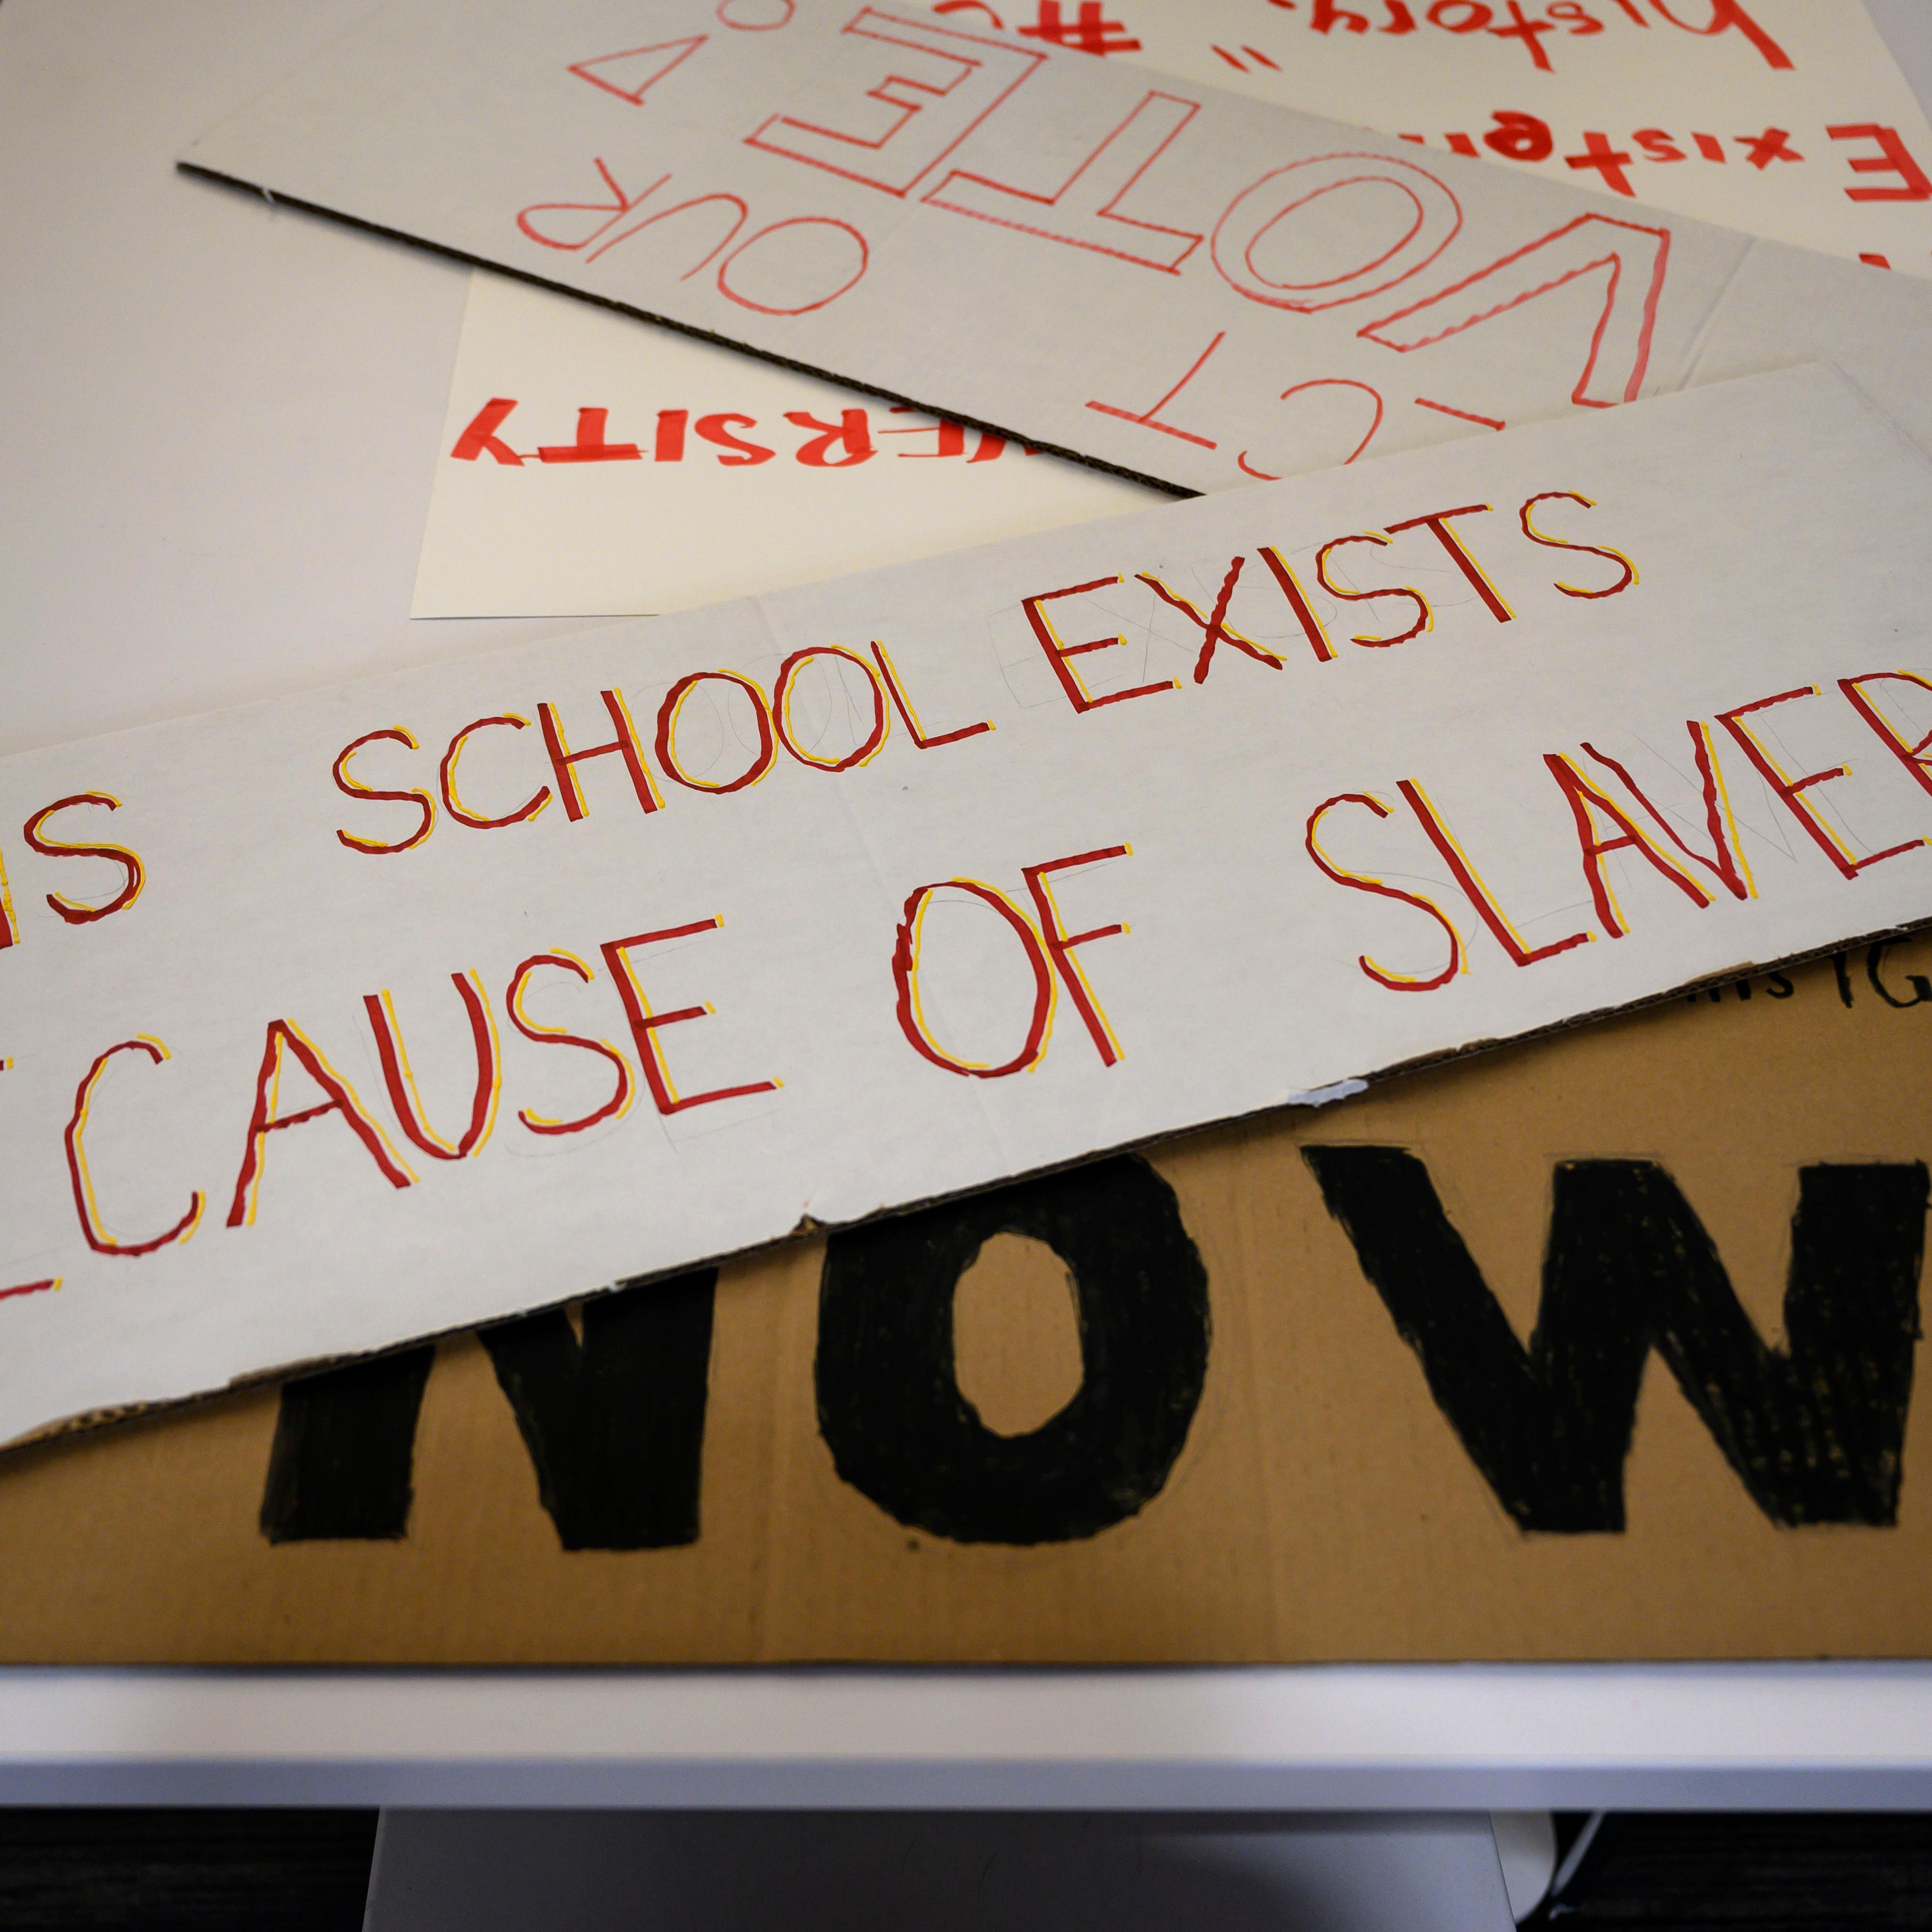 history.
"
OUR VOTE
ERSITY
IS SCHOOL EXISTS
ECAUSE OF SLAVER
NOW